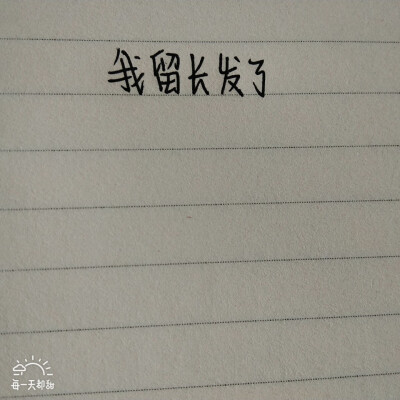 我留长发了
每一天都甜